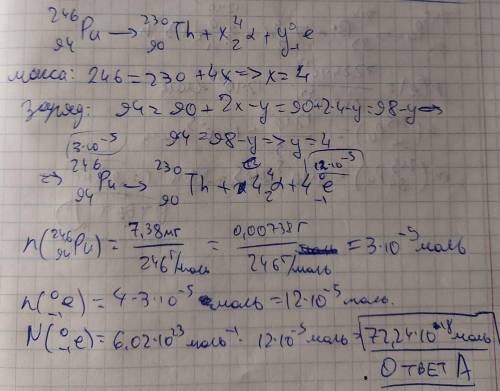 ²⁴⁶₉₄Pu → ²³⁰₉₀Th + x⁴₂α + y⁰₋₁e
масса: 246 = 230 + 4x => x = 4
заряд: 94 = 90 + 2x - y = 90 + 2·4 - y = 98 - y =>
94 = 98 - y => y = 4
3·10⁻⁵ 12·10⁻⁵
=> ²⁴⁶₉₄Pu → ²³⁰₉₀Th + 4⁴₂α + 4⁰₋₁e
n(²⁴⁶₉₄Pu) = 7,38мг / 246г/моль = 0,00738г / 246г/моль = 3·10⁻⁵моль
n(⁰₋₁e) = 4·3·10⁻⁵ моль = 12·10⁻⁵моль.
N(⁰₋₁e) = 6.02·10²³моль⁻¹ · 12·10⁻⁵моль = 72,24·10¹⁸моль
. ОТВЕТ А